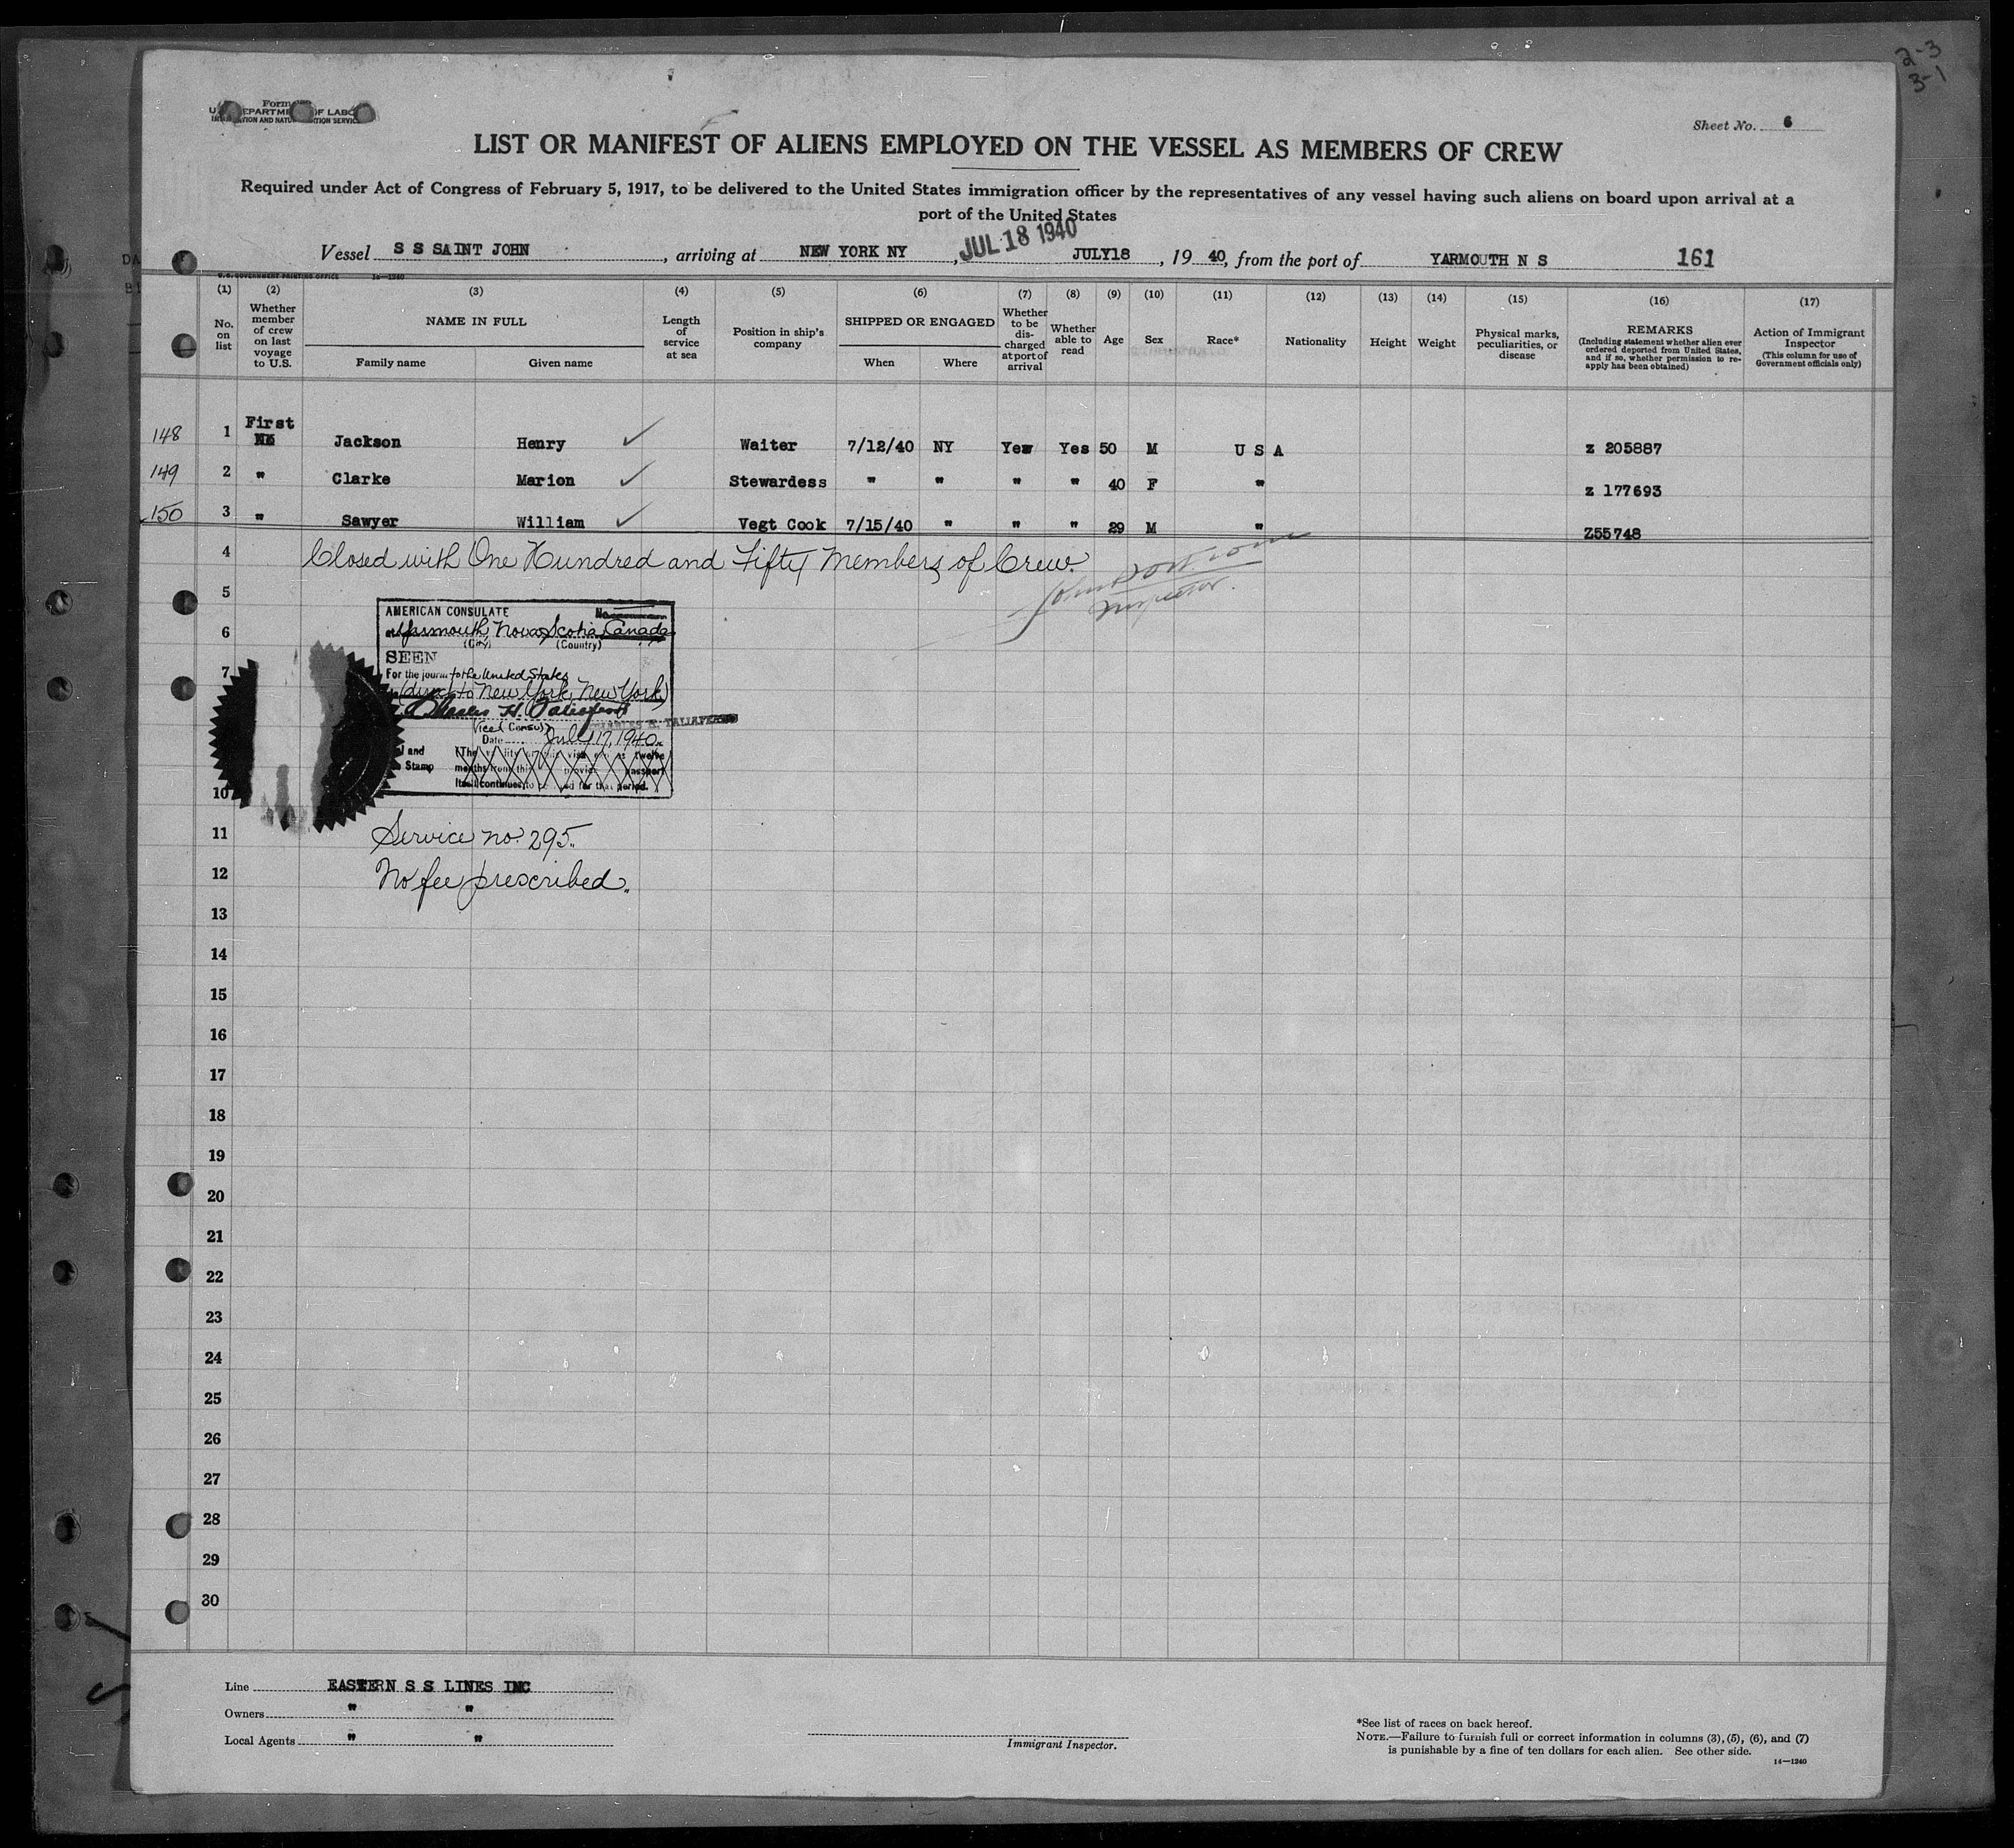 2-3
3-1
Form
U. S. DEPARTMENT OF LABOR
IMMIGRATION AND NATURALIZATION SERVICE
Sheet No. 6
LIST OR MANIFEST OF ALIENS EMPLOYED ON THE VESSEL AS MEMBERS OF CREW
Required under Act of Congress of February 5, 1917, to be delivered to the United States immigration officer by the representatives of any vessel having such aliens on board upon arrival at a
port of the United States
JUL 18 1940
Vessel S S SAINT JOHN, arriving at NEW YORK NY, JULY18, 19 40, from the port of YARMOUTH N S 161
U.S. GOVERNMENT PRINTING OFFICE 14—1240
(1) (2) (3) (4) (5) (6) (7) (8) (9) (10) (11) (12) (13) (14) (15) (16) (17)
No. on list
Whether member of crew on last voyage to U.S.
NAME IN FULL
Family name Given name
Length of service at sea
Position in ship's company
SHIPPED OR ENGAGED
When Where
Whether to be discharged at port of arrival
Whether able to read
Age Sex Race* Nationality Height Weight
Physical marks, peculiarities, or disease
REMARKS
(Including statement whether alien ever ordered deported from United States, and if so, whether permission to reapply has been obtained)
Action of Immigrant Inspector
(This column for use of Government officials only)
148 1 First No Jackson Henry ✓ Waiter 7/12/40 NY Yes Yes 50 M U S A z 205887
149 2 " Clarke Marion ✓ Stewardess " " " " 40 F " z 177693
150 3 " Sawyer William ✓ Vegt Cook 7/15/40 " " " 29 M " Z55748
4 Closed with One Hundred and Fifty Members of Crew.
5
Inspector.
6
7
10
AMERICAN CONSULATE No.
at Yarmouth, Nova Scotia, Canada
(City) (Country)
SEEN
For the journey to the United States
(direct to New York, New York)
Charles H. Taliaferro
CHARLES H. TALIAFERRO
Vice Consul
Date July 17, 1940.
Seal and
Stamp
(The validity of this visa twelve
months from this provided passport
itself continues to be valid for that period.
11 Service no. 295.
12 No fee prescribed.
13
14
15
16
17
18
19
20
21
22
23
24
25
26
27
28
29
30
Line EASTERN S S LINES INC
Owners " "
Local Agents " "
Immigrant Inspector.
*See list of races on back hereof.
NOTE.—Failure to furnish full or correct information in columns (3), (5), (6), and (7)
is punishable by a fine of ten dollars for each alien. See other side.
14—1240